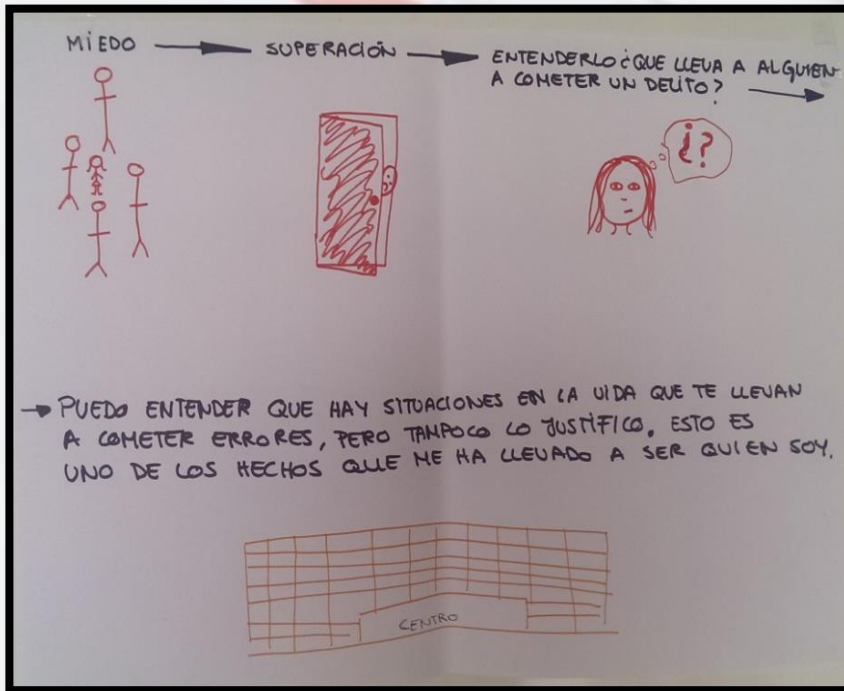 MIEDO → SUPERACIÓN → ENTENDERLO ¿QUE LLEVA A ALGUIEN
A COMETER UN DELITO? →
¿?
→ PUEDO ENTENDER QUE HAY SITUACIONES EN LA VIDA QUE TE LLEVAN
A COMETER ERRORES, PERO TANPOCO LO JUSTIFICO. ESTO ES
UNO DE LOS HECHOS QUE ME HA LLEVADO A SER QUIEN SOY.
CENTRO